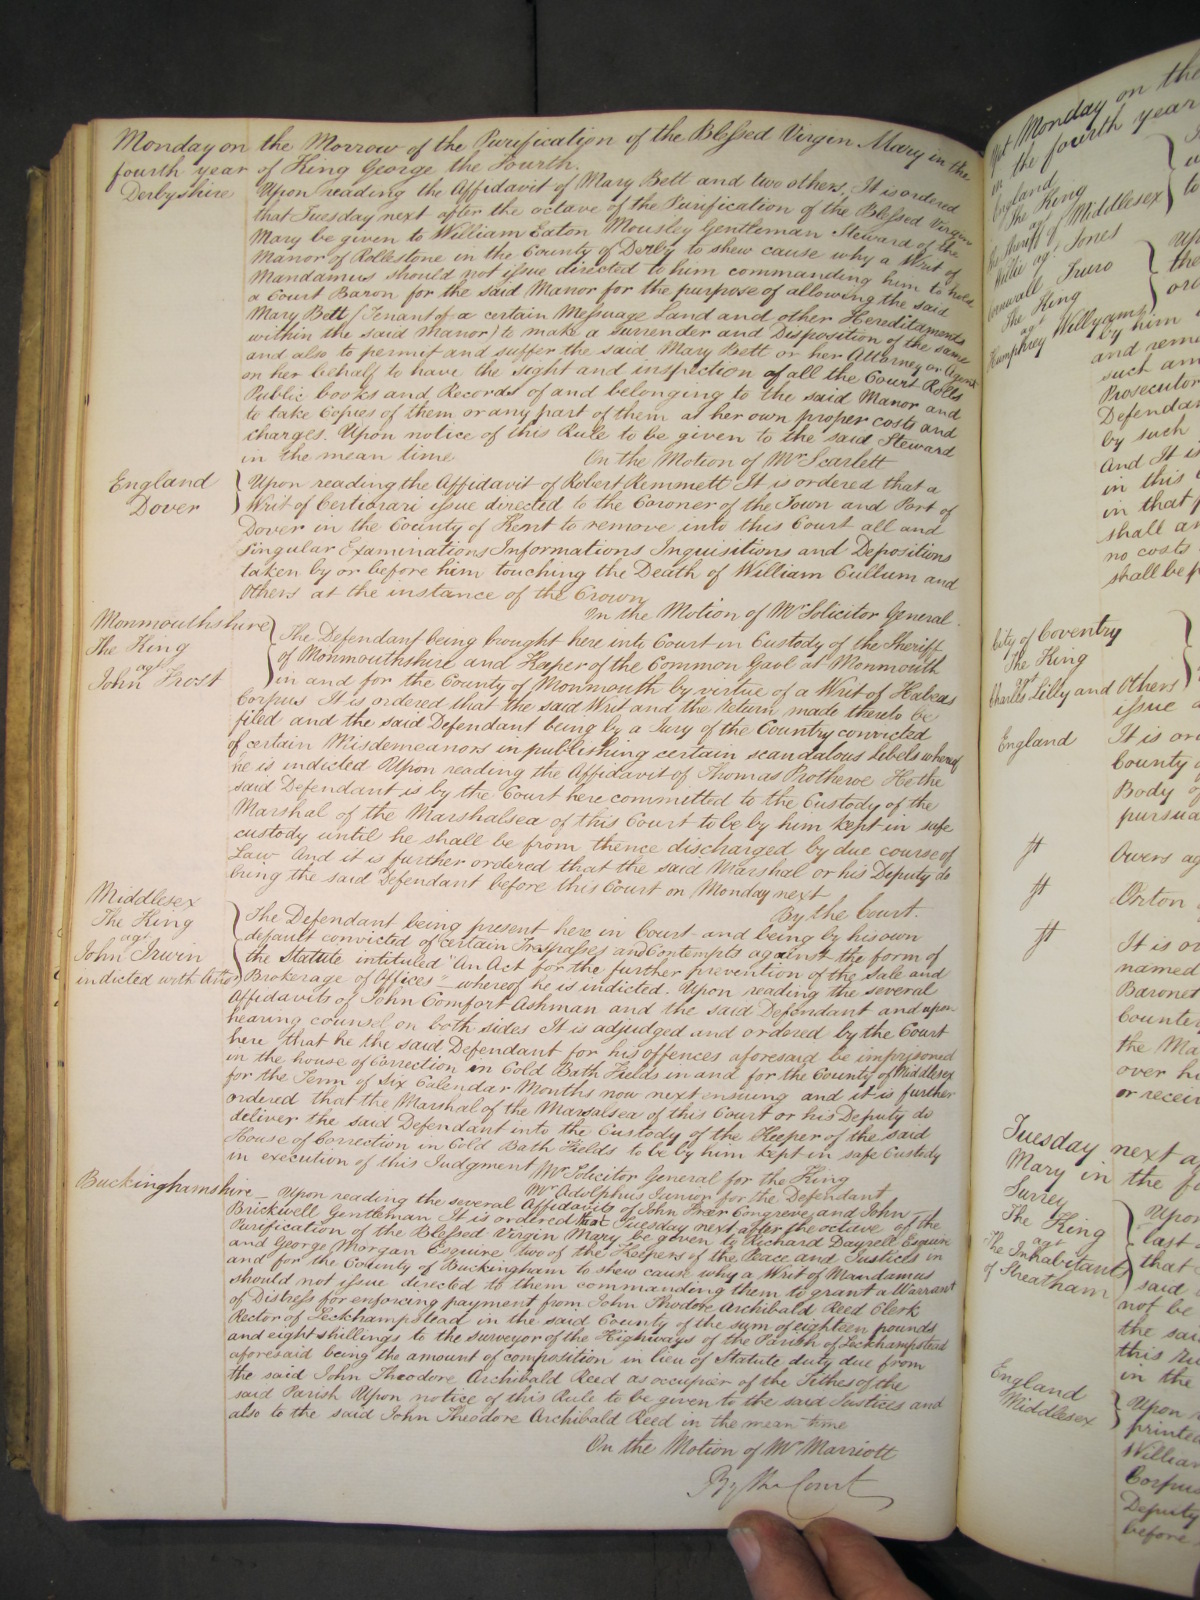 Monday on the Morrow of the Purification of the Blessed Virgin Mary in the
fourth year of King George the Fourth.
Derbyshire Upon reading the Affidavit of Mary Bett and two others, It is ordered
that Tuesday next after the octave of the Purification of the Blessed Virgin
Mary be given to William Eaton Mousley Gentleman Steward of the
Manor of Rolleston in the County of Derby to shew cause why a Writ of
Mandamus should not issue directed to him commanding him to hold
a Court Baron for the said Manor for the purpose of allowing the said
Mary Bett (Tenant of a certain Messuage Land and other Hereditaments
within the said Manor) to make a Surrender and Disposition of the same
and also to permit and suffer the said Mary Bett or her Attorney or Agent
on her behalf to have the sight and inspection of all the Court Rolls
Public books and Records of and belonging to the said Manor and
to take Copies of them or any part of them at her own proper costs and
charges. Upon notice of this Rule to be given to the said Steward
in the mean time On the Motion of Mr Scarlett
England Upon reading the Affidavit of Robert Kemmett It is ordered that a
Dover Writ of Certiorari issue directed to the Coroner of the Town and Port of
Dover in the County of Kent to remove into this Court all and
singular Examinations Informations Inquisitions and Depositions
taken by or before him touching the Death of William Cullum and
Others at the instance of the Crown
On the Motion of Mr Solicitor General
Monmouthshire The Defendant being brought here into Court in Custody of the Sheriff
The King of Monmouthshire and Keeper of the Common Gaol at Monmouth
agt in and for the County of Monmouth by virtue of a Writ of Habeas
John Frost Corpus It is ordered that the said Writ and the Return made thereto be
filed and the said Defendant being by a Jury of the Country convicted
of certain Misdemeanors in publishing certain scandalous libels whereof
he is indicted Upon reading the Affidavit of Thomas Protheroe He the
said Defendant is by the Court here committed to the Custody of the
Marshal of the Marshalsea of this Court to be by him kept in safe
custody until he shall be from thence discharged by due course of
Law And it is further ordered that the said Marshal or his Deputy do
bring the said Defendant before this Court on Monday next
By the Court.
Middlesex The Defendant being present here in Court and being by his own
The King default convicted of certain Trespasses and Contempts against the form of
agt
John Irwin the Statute intituled "An Act for the further prevention of the Sale and
indicted with Brokerage of Offices" whereof he is indicted. Upon reading the several
Affidavits of John Comfort Ashman and the said Defendant and upon
hearing counsel on both sides It is adjudged and ordered by the Court
here that he the said Defendant for his offences aforesaid be imprisoned
in the house of Correction in Cold Bath Fields in and for the County of Middlesex
for the Term of Six Calendar Months now next ensuing and it is further
ordered that the Marshal of the Marsalsea of this Court or his Deputy do
deliver the said Defendant into the Custody of the Keeper of the said
House of Correction in Cold Bath Fields to be by him kept in safe Custody
in execution of this Judgment Mr Solicitor General for the King
Mr Adolphus Junior for the Defendant
Buckinghamshire Upon reading the several Affidavits of John Congreve and John
Brickwell Gentleman It is ordered that Tuesday next after the octave of the
Purification of the Blessed Virgin Mary be given to Richard Dayrell Esquire
and George Morgan Esquire two of the Keepers of the Peace and Justices in
and for the County of Buckingham to shew cause why a Writ of Mandamus
should not issue directed to them commanding them to grant a Warrant
of Distress for enforcing payment from John Theodore Archibald Reed Clerk
Rector of Leckhampstead in the said County of the sum of eighteen pounds
and eight shillings to the surveyor of the Highways of the Parish of Leckhampstead
aforesaid being the amount of composition in lieu of Statute duty due from
the said John Theodore Archibald Reed as occupier of the Tithes of the
said Parish Upon notice of this Rule to be given to the said Justices and
also to the said John Theodore Archibald Reed in the mean time
On the Motion of Mr Marriott
By the Court
Monday on the
in the fourth year
England
The King
agt
Sheriff of Middlesex
Willie agt Jones
Cornwall, Truro
The King
agt
Humphrey Willyams
by him
and
such
Prosecutor
by such
And It is
in this
in that
shall
no costs
shall be
City of Coventry
The King
agt
Charles Lilly and Others
issue
England It is
County
Body
Owers
Orton
It is
named
Baronet
the
over
or
Tuesday next
Mary in the
Surrey
The King
agt
The Inhabitants
of Streatham
Upon
last
that
said
not be
the said
this
in the
England
Middlesex
Upon
printed
William
Corpus
Deputy
before